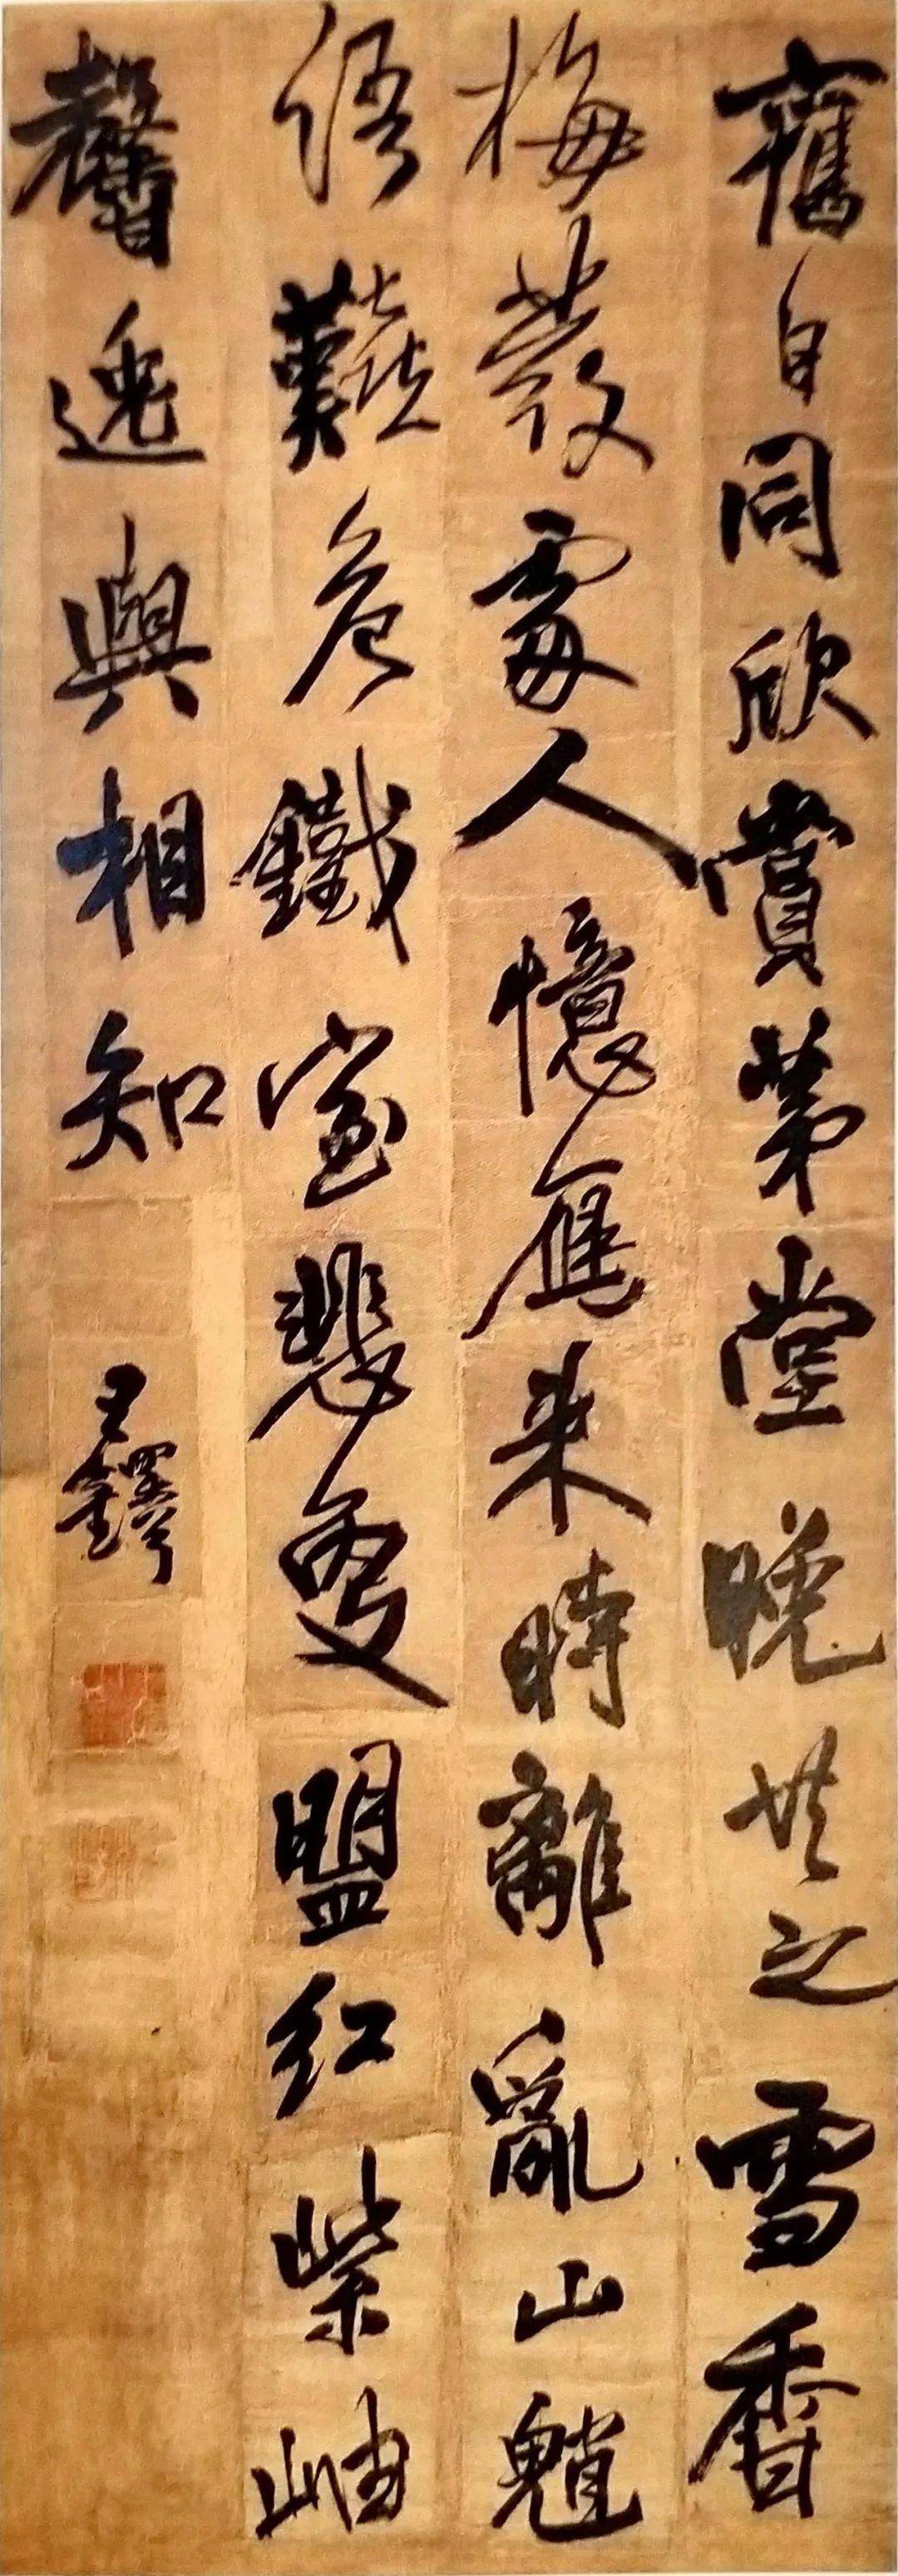 舊日同欣賞茅堂晚共之雪香
梅發處人憶雁來時離亂山魈
語艱危鐵室悲更盟紅紫岫
馨逸與相知
王鐸